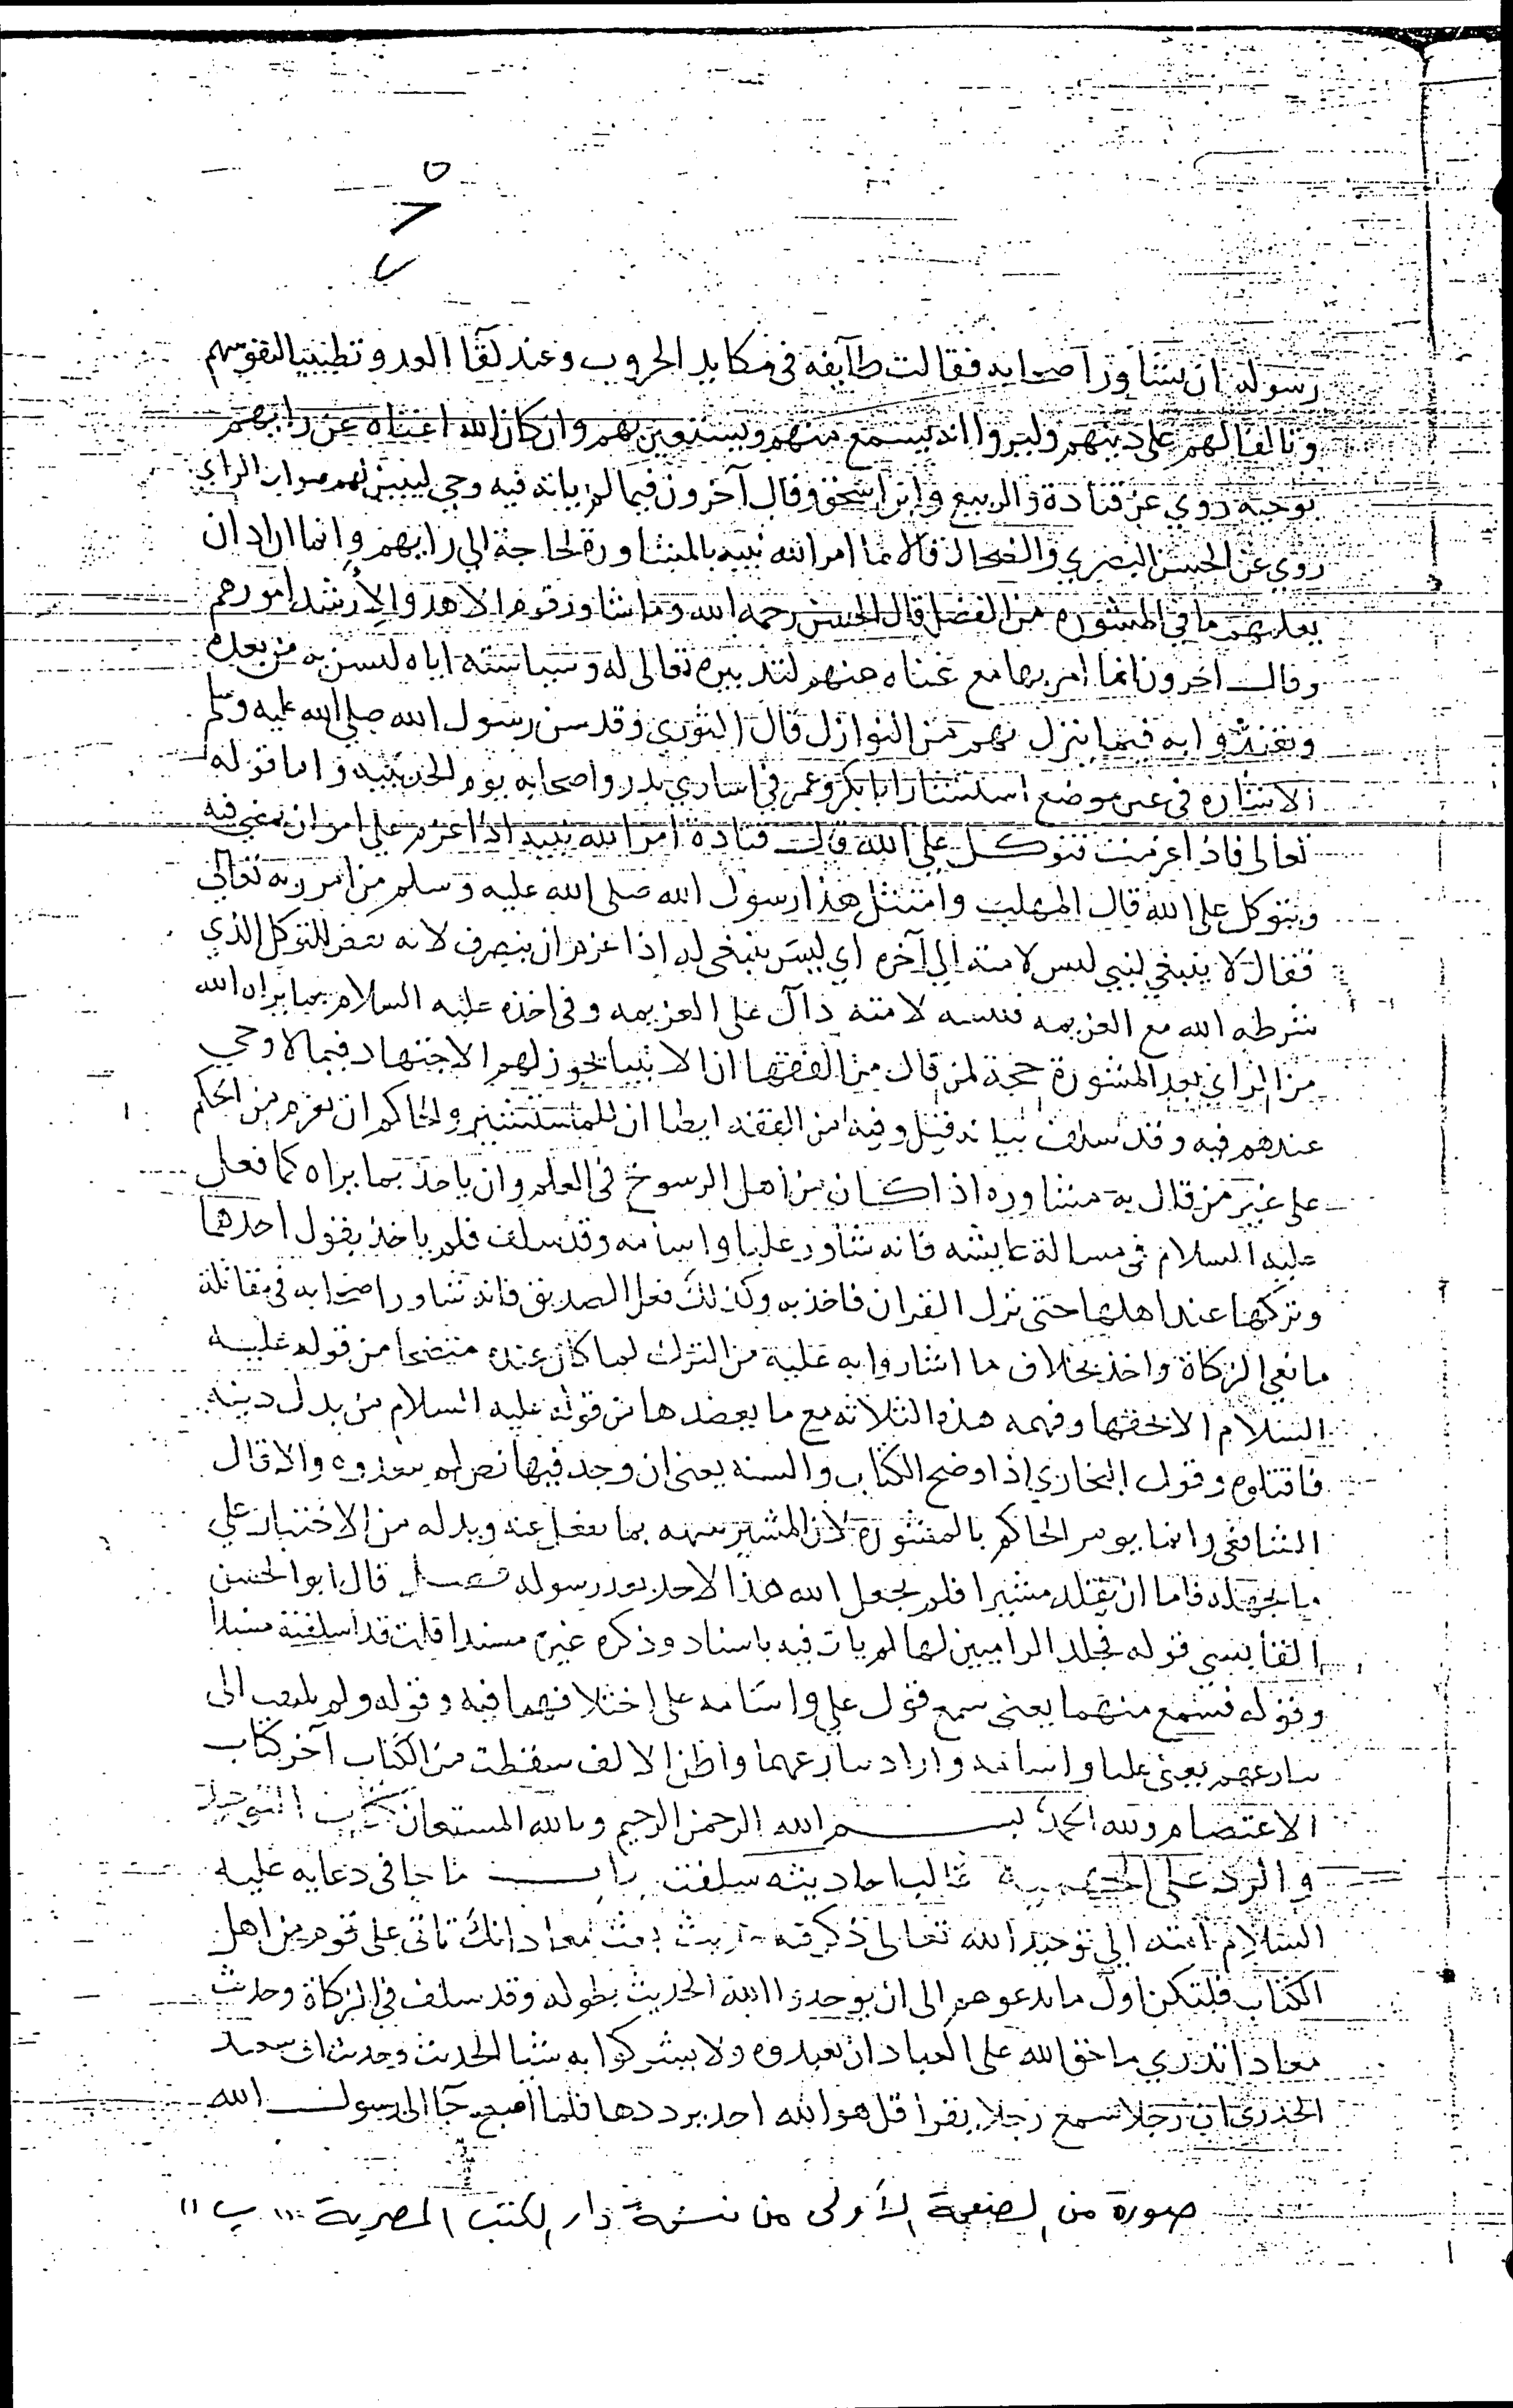 رسوله ان يشاور اصحابه فقالت طآيفة في مكايد الحروب وعند لقآ العدو وتطييبا لنفوسهم
وتالفا لهم على دينهم وليروا انه يسمع منهم ويستعين بهم وان كان الله اغناه عن رايهم
بوحيه روي عن قتادة والربيع وابن اسحق وقال آخرون فيما لم ياته فيه وحي ليبين لهم صواب الراي
روي عن الحسن البصري والضحاك قالا ما امر الله نبيه بالمشاورة لحاجة الي رايهم وانما اراد ان
يعلمهم ما في المشوره من الفضل قال الحسن رحمه الله وما شاور قوم الا هدوا لأرشد امورهم
وقال اخرون انما امر بها مع غناه عنهم لتدبيره تعالى له وسياسته اياه ليستن به من بعده
ويقتدوا به فيما ينزل بهم من النوازل قال الثوري وقد سن رسول الله صلي الله عليه وسلم
الاستشاره في غير موضع استشار ابا بكر وعمر في اساري بدر واصحابه يوم الحديبيه واما قوله
تعالى فاذا عزمت فتوكل على الله قالت قتادة امر الله نبيه اذا عزم علي امر ان يمضي فيه
ويتوكل على الله قال المهلب وامتثل هذا رسول الله صلى الله عليه وسلم من امر ربه تعالى
فقال لا ينبغي لنبي لبس لامته الي آخره اي ليس ينبغي له اذا عزم ان ينصرف لانه نقض للتوكل الذي
شرطه الله مع العزيمه فلبسه لامته دآل على العزيمه وفي اخذه عليه السلام بما يراه الله
من الراي بعد المشورة حجة لمن قال من الفقها ان الانبيا يجوز لهم الاجتهاد فيما لا وحي
عندهم فيه وقد سلف بيانه قيل وفيه من الفقه ايضا ان للمستشير والحاكم ان يعزم من الحكم
على غير من قال به مشاوره اذا كان من اهل الرسوخ في العلم وان ياخذ بما يراه كما فعل
عليه السلام في مسالة عايشه فانه شاور عليا واسامه وقد سلف فلم ياخذ بقول احدهما
وتركها عند اهلها حتى نزل القران فاخذ به وكذلك فعل الصديق فانه شاور اصحابه في مقاتلة
مانعي الزكاة واخذ بخلاف ما اشاروا به عليه من الترك لما كان عنده متضحا من قوله عليه
السلام الا بحقها وفهمه هذه الثلاثه مع ما يعضدها من قوله عليه السلام من بدل دينه
فاقتلوه وقول البخاري اذا وضح الكتاب والسنه يعني ان وجد فيها نص لم يعدوه والا قال
الشافعي وانما يومر الحاكم بالمشوره لان المشير ينبهه بما يغفل عنه ويدله من الاختيار علي
ما يجهله فاما ان يقلد مشيرا فلم يجعل الله هذا لاحد بعد رسوله فصل قال ابو الحسن
القابسي قوله فجلد الراميين لها لم يات فيه باسناد وذكره غيره مسندا قلت قد اسلفته مسندا
وقوله فسمع منهما يعني سمع قول علي واسامه على اختلافهما فيه وقوله ولم يلتفت الى
تنازعهم يعني عليا واسامه واراد تنازعهما واظن الالف سقطت من الكتاب آخر كتاب
الاعتصام ولله الحمد بسم الله الرحمن الرحيم وبالله المستعان كتاب التوحيد
والرد على الجهمية غالب احاديثه سلفت باب ما جا في دعايه عليه
السلام امته الي توحيد الله تعالى ذكر فيه حديث بعث معاذ انك تاتي على قوم من اهل
الكتاب فليكن اول ما تدعوهم الى ان يوحدوا الله الحديث بطوله وقد سلف في الزكاة وحديث
معاذ اتدري ما حق الله على العباد ان يعبدوه ولا يشركوا به شيا الحديث وحديث ابي سعيد
الخدري ان رجلا سمع رجلا يقرا قل هو الله احد يرددها فلما اصبح جآ الى رسول الله
صورة من الصفحة الأولى من نسخة دار الكتب المصرية "ب"